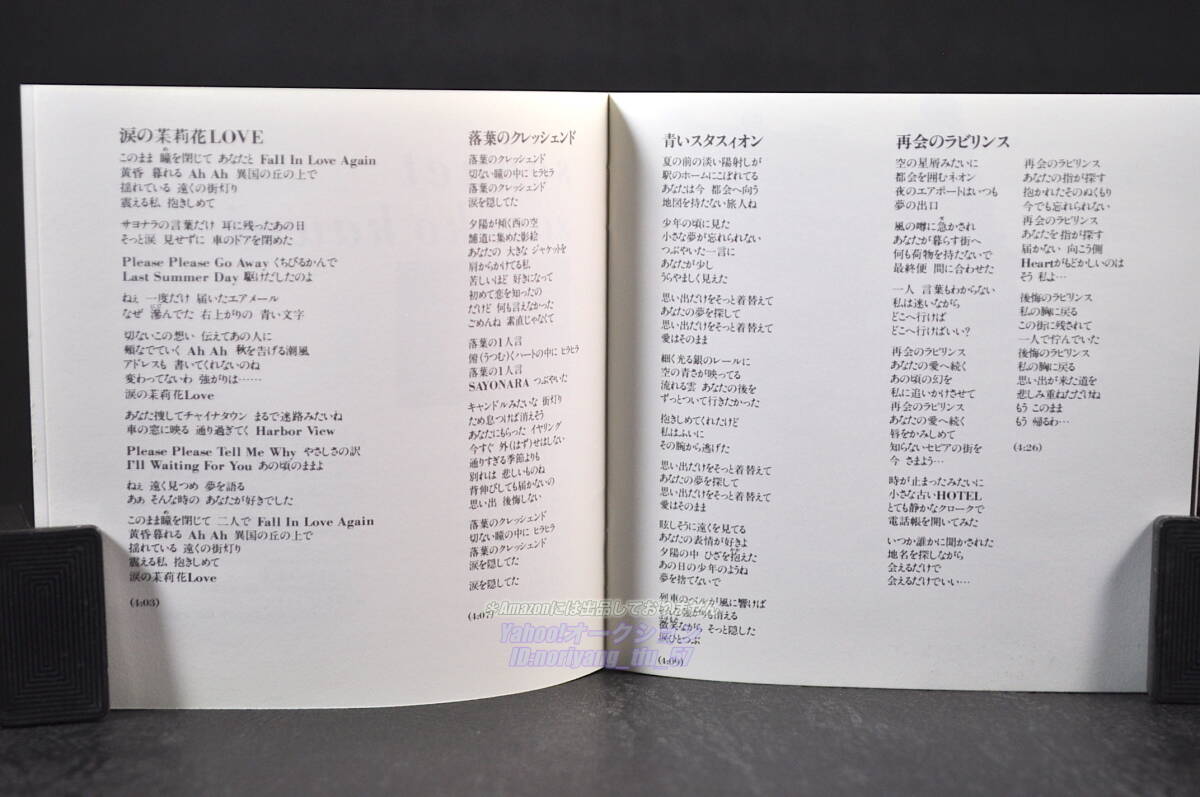 涙の茉莉花LOVE
このまま 瞳を閉じて あなたと Fall In Love Again
黄昏 暮れる Ah Ah 異国の丘の上で
揺れている 遠くの街灯り
震える私 抱きしめて
サヨナラの言葉だけ 耳に残ったあの日
そっと涙 見せずに 車のドアを閉めた
Please Please Go Away くちびるかんで
Last Summer Day 駆けだしたのよ
ねぇ 一度だけ 届いたエアメール
なぜ 滲んでた 右上がりの 青い文字
切ないこの想い 伝えてあの人に
頬なでていく Ah Ah 秋を告げる潮風
アドレスも 書いてくれないのね
変わってないわ 強がりは……
涙の茉莉花Love
あなた捜してチャイナタウン まるで迷路みたいね
車の窓に映る 通り過ぎてく Harbor View
Please Please Tell Me Why やさしさの訳
I'll Waiting For You あの頃のままよ
ねぇ 遠く見つめ 夢を語る
あぁ そんな時の あなたが好きでした
このまま瞳を閉じて 二人で Fall In Love Again
黄昏 暮れる Ah Ah 異国の丘の上で
揺れている 遠くの街灯り
震える私 抱きしめて
涙の茉莉花Love
(4:03)
落葉のクレッシェンド
落葉のクレッシェンド
切ない瞳の中に ヒラヒラ
落葉のクレッシェンド
涙を隠してた
夕陽が傾く西の空
舗道に集めた影絵
あなたの 大きな ジャケットを
肩からかけてる私
苦しいほど 好きになって
初めて恋を知ったの
だけど 何も言えなかった
ごめんね 素直じゃなくて
落葉の1人言
俯(うつむ)くハートの中に ヒラヒラ
落葉の1人言
SAYONARA つぶやいた
キャンドルみたいな 街灯り
ため息つけば消えそう
あなたにもらった イヤリング
今すぐ 外(はず)せはしない
通りすぎる季節よりも
別れは 悲しいものね
背伸びしても届かないの
思い出 後悔しない
落葉のクレッシェンド
切ない瞳の中に ヒラヒラ
落葉のクレッシェンド
涙を隠してた
涙を隠してた
(4:07)
青いスタスィオン
夏の前の淡い陽射しが
駅のホームにこぼれてる
あなたは今 都会へ向う
地図を持たない旅人ね
少年の頃に見た
小さな夢が忘れられない
つぶやいた一言に
あなたが少し
うらやましく見えた
思い出だけをそっと着替えて
あなたの夢を探して
思い出だけをそっと着替えて
愛はそのまま
細く光る銀のレールに
空の青さが映ってる
流れる雲 あなたの後を
ずっとついて行きたかった
抱きしめてくれたけど
私はふいに
その腕から逃げた
思い出だけをそっと着替えて
あなたの夢を探して
思い出だけをそっと着替えて
愛はそのまま
眩しそうに遠くを見てる
あなたの表情が好きよ
夕陽の中 ひざを抱えた
あの日の少年のようね
夢を捨てないで
列車のベルが風に響けば
微笑ながら そっと隠した
涙ひとつぶ
(4:09)
再会のラビリンス
空の星屑みたいに
都会を囲むネオン
夜のエアポートはいつも
夢の出口
風の噂に急かされ
あなたが暮らす街へ
何も荷物を持たないで
最終便 間に合わせた
一人 言葉もわからない
私は迷いながら
どこへ行けば
どこへ行けばいい?
再会のラビリンス
あなたの愛へ続く
あの頃の幻を
私に追いかけさせて
再会のラビリンス
あなたの愛へ続く
唇をかみしめて
知らないセピアの街を
今 さまよう…
時が止まったみたいに
小さな古いHOTEL
とても静かなクロークで
電話帳を開いてみた
いつか誰かに聞かされた
地名を探しながら
会えるだけで
会えるだけでいい…
再会のラビリンス
あなたの指が探す
抱かれたそのぬくもり
今でも忘れられない
再会のラビリンス
あなたを指が探す
届かない 向こう側
Heartがもどかしいのは
そう 私よ…
後悔のラビリンス
私の胸に戻る
この街に残されて
一人で佇んでいた
後悔のラビリンス
私の胸に戻る
思い出が来た道を
悲しみ重ねただけね
もう このまま
もう 帰るわ…
(4:26)
※Amazonには出品しておりません
Yahoo!オークション
ID:noriyang_tiu_57